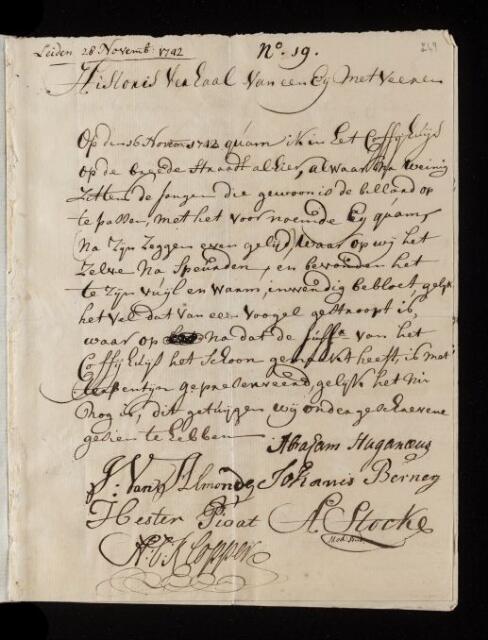 Leiden 28 Novemb: 1742
N:o 19.
249
Historis Verhaal Van een Ey Met Veeren
Op den 16 Novem 1742 quam ik in Het Coffy Huys
op de breede Straadt alhier, alwaar Bij Weinig
Zittens de Jongen die gewoon is de billard op
te passen, Met het voor noemde Ey quam,
Na Zijn Zeggen even gelijd, Waar op wij het
Zelve Na Speurden, en bevonden het
te Zijn vuyl en Warm, inwendig bebloet, gelyk
het Vel dat van een Voogel gestroopt is,
waar op Na dat de Juffr van het
Coffy Huys het Schoon gemaakt heeft, is met
terpentijn gepreserveerd gelijk het Nu
Nog is, dit getuygen wij ondergeschreevene
gesien te hebben
Abraham Haganaeus
J: Van Almonde
Johannis Berney
Hester Pioat
A. Stocke
Med: Doct:
A. C. Klopper